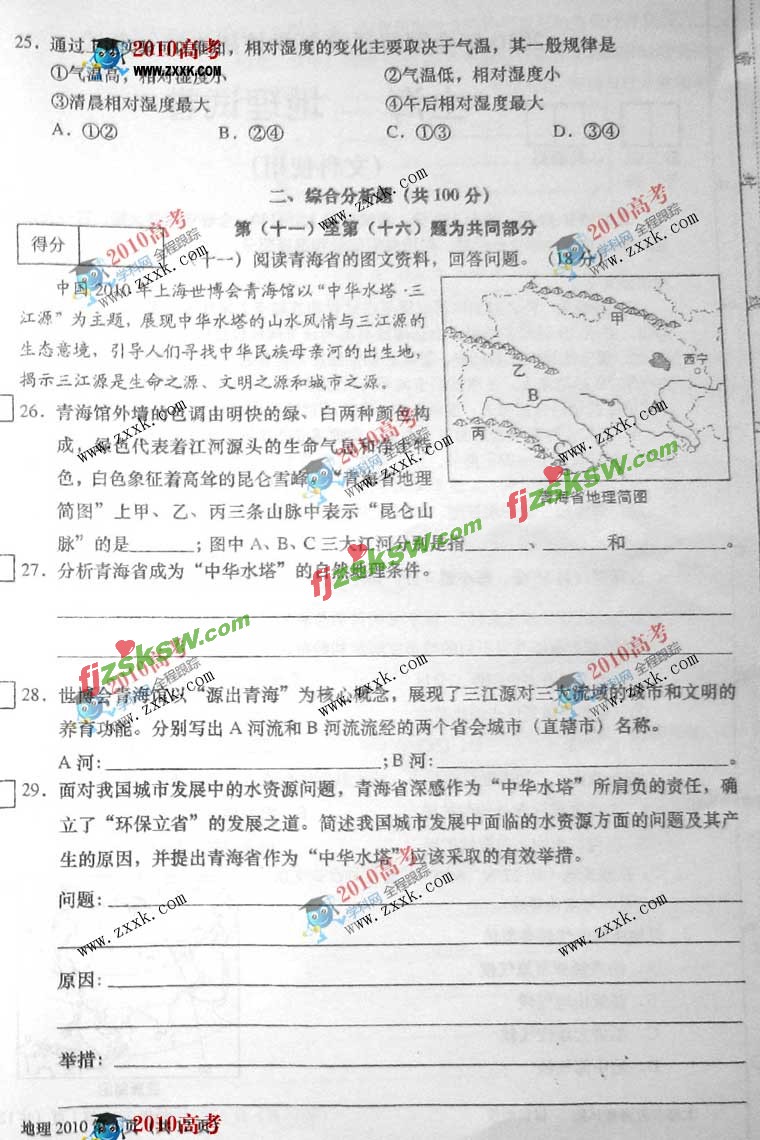 25．通过 实 ，相对湿度的变化主要取决于气温，其一般规律是
①气温高，相对湿度小 ②气温低，相对湿度小
③清晨相对湿度最大 ④午后相对湿度最大
A．①② B．②④ C．①③ D．③④
二、综合分析题（共100分）
第（十一）至第（十六）题为共同部分
得分
（十一）阅读青海省的图文资料，回答问题。（18分）
中国2010年上海世博会青海馆以“中华水塔·三
江源”为主题，展现中华水塔的山水风情与三江源的
生态意境，引导人们寻找中华民族母亲河的出生地，
揭示三江源是生命之源、文明之源和城市之源。
甲
乙
丙
西宁
A
B
C
青海省地理简图
26．青海馆外墙的色调由明快的绿、白两种颜色构
成，绿色代表着江河源头的生命气息和 特
色，白色象征着高耸的昆仑雪峰。“青海省地理
简图”上甲、乙、丙三条山脉中表示“昆仑山
脉”的是______；图中A、B、C三大江河分别是指______、______和______。
27．分析青海省成为“中华水塔”的自然地理条件。
28．世博会青海馆以“源出青海”为核心概念，展现了三江源对三大流域的城市和文明的
养育功能。分别写出A河流和B河流流经的两个省会城市（直辖市）名称。
A河：______；B河：______。
29．面对我国城市发展中的水资源问题，青海省深感作为“中华水塔”所肩负的责任，确
立了“环保立省”的发展之道。简述我国城市发展中面临的水资源方面的问题及其产
生的原因，并提出青海省作为“中华水塔”应该采取的有效举措。
问题：
原因：
举措：
地理2010第 页（共 页）
2010高考
学科网 全程跟踪
www.zxxk.com
fjzsksw.com
密
封